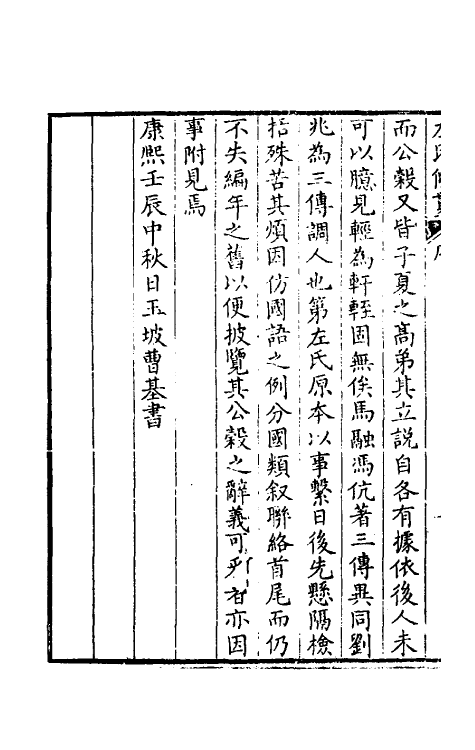 左氏條貫 序
而公穀又皆子夏之高弟其立說自各有據依後人未
可以臆見輕為軒輊固無俟馬融馮伉著三傳異同劉
兆為三傳調人也第左氏原本以事繫日後先懸隔檢
括殊苦其煩因仿國語之例分國類叙聯絡首尾而仍
不失編年之舊以便披覽其公穀之辭義可者亦因
事附見焉
康熙壬辰中秋日玉坡曹基書